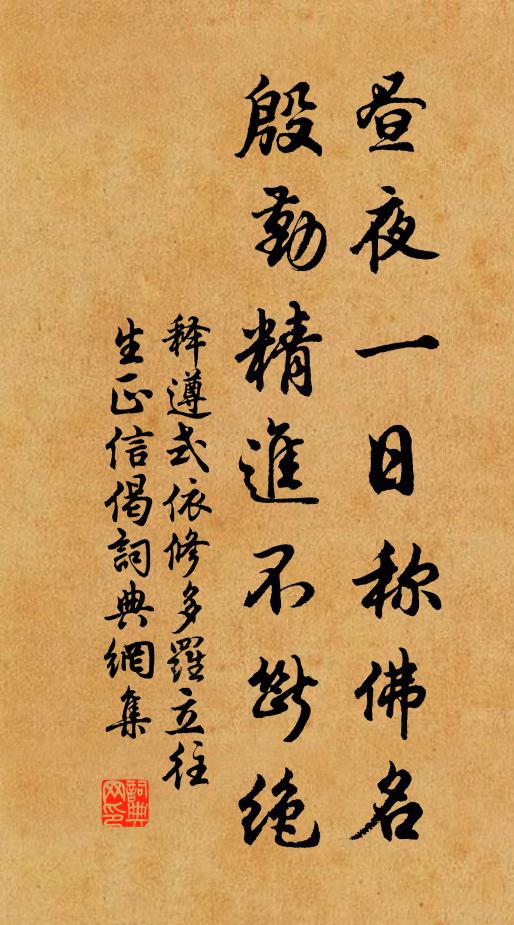 昼夜一日称佛名
殷勤精進不断绝
释遵式依修多羅立往
生正信偈詞典網集
詞典
网印